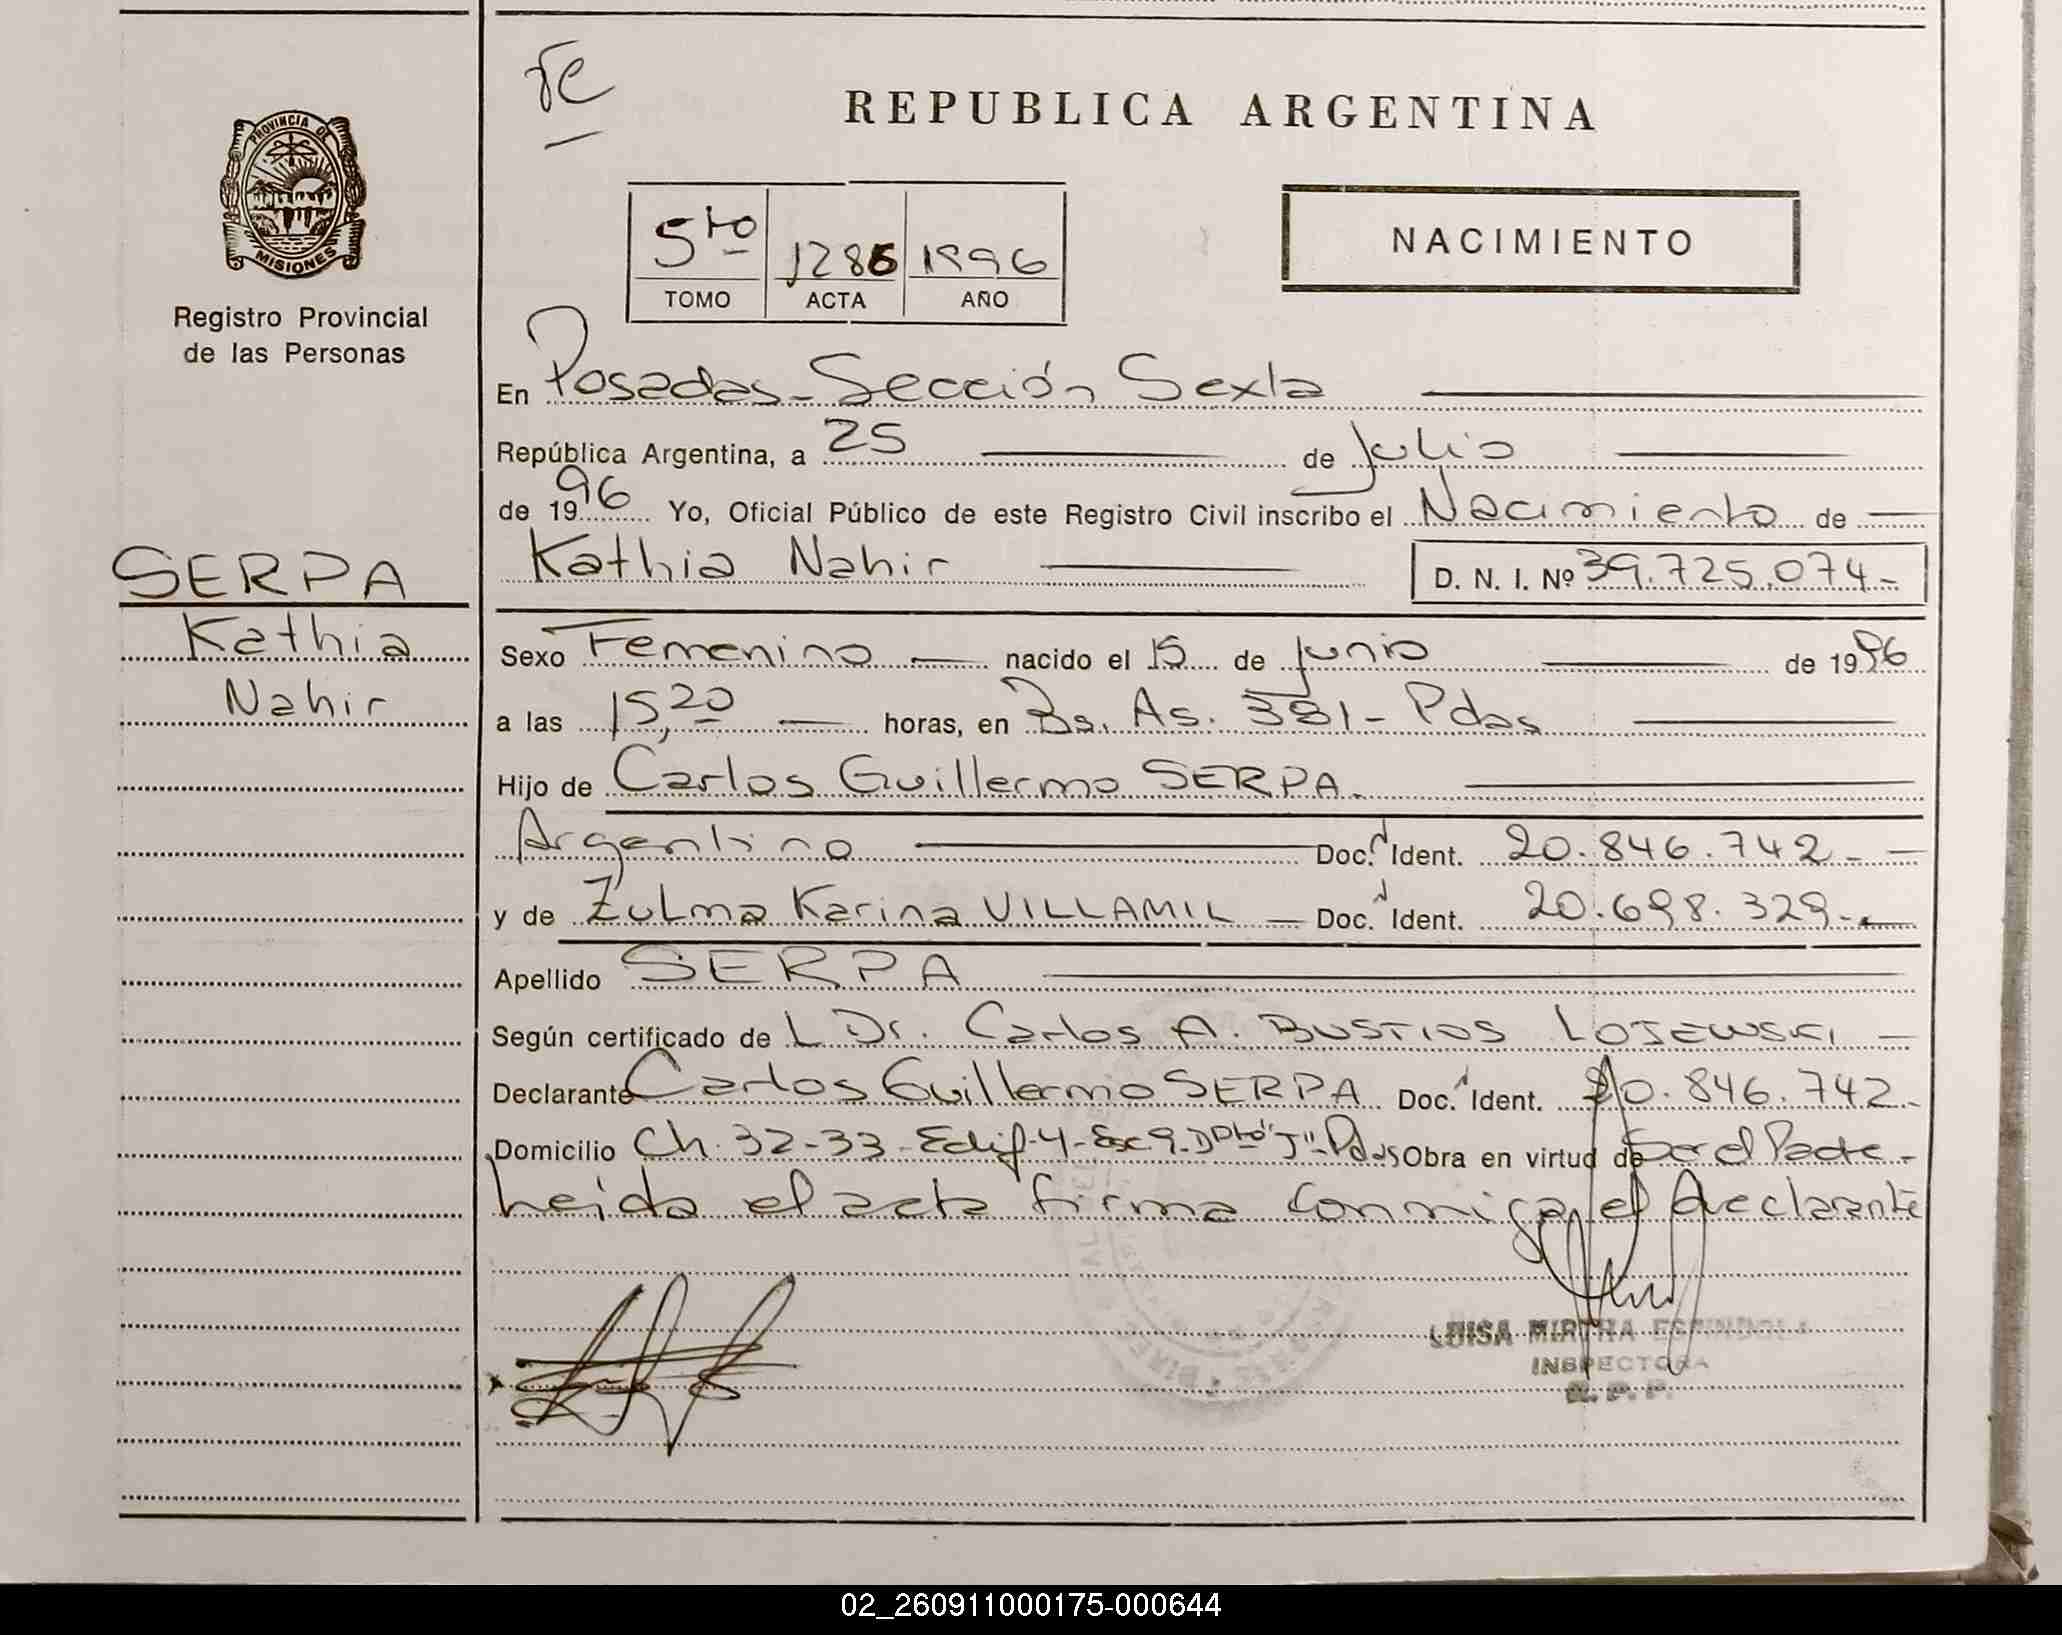 Fe
REPUBLICA ARGENTINA
PROVINCIA DE
MISIONES
Registro Provincial
de las Personas
5to 1286 1996
TOMO ACTA AÑO
NACIMIENTO
En Posadas - Sección Sexta
República Argentina, a 25 de Julio
de 1996 Yo, Oficial Público de este Registro Civil inscribo el Nacimiento de
SERPA
Kathia Nahir
D. N. I. Nº 39.725.074.-
Kathia
Nahir
Sexo Femenino nacido el 15 de Junio de 1996
a las 15,20 horas, en Bs. As. 381 - Pdas
Hijo de Carlos Guillermo SERPA.
Argentino Doc. Ident. 20.846.742.-
y de Zulma Karina VILLAMIL Doc. Ident. 20.698.329.-
Apellido SERPA
Según certificado de L Dr. Carlos A. BUSTIOS LOJEWSKI
Declarante Carlos Guillermo SERPA Doc. Ident. 20.846.742.
Domicilio Ch. 32-33-Edif-4-Esc 9-Dpto "J"-Pdas Obra en virtud de Ser el Padre.-
Leida el acta firma conmigo el declarante
LUISA MIRTHA ESPINDOLA
INSPECTORA
R. P. P.
02_260911000175-000644